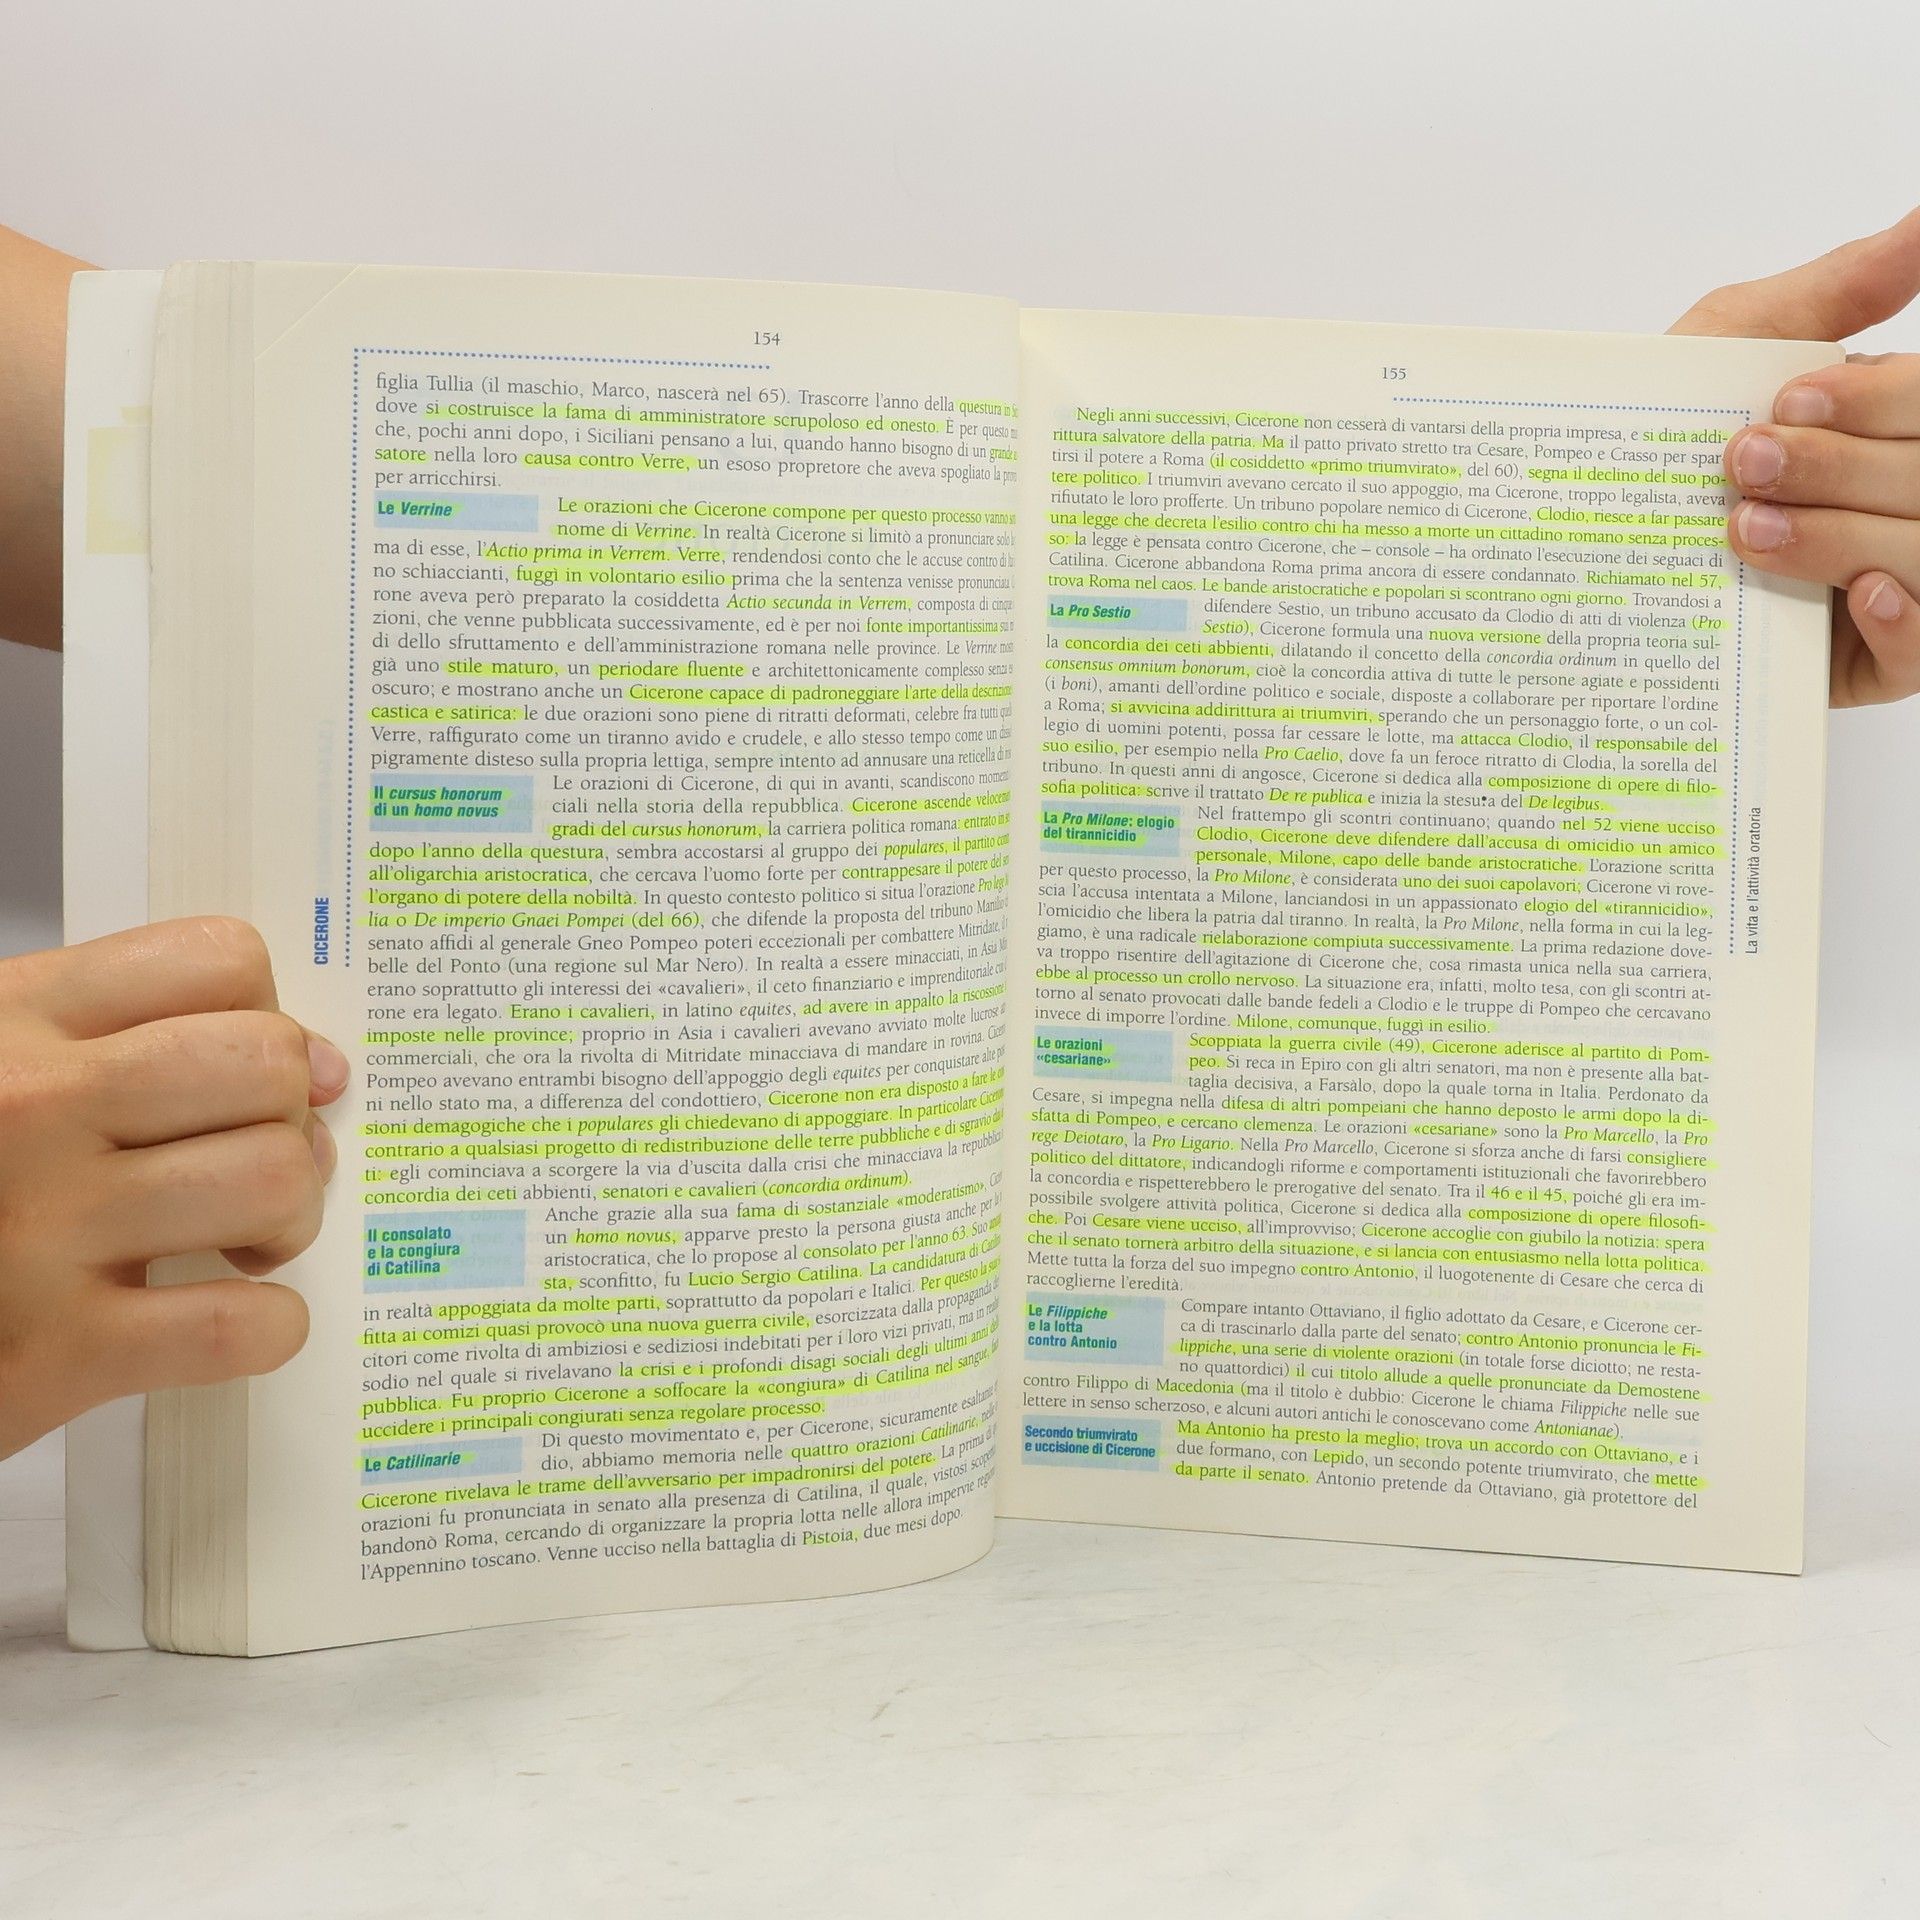 154
figlia Tullia (il maschio, Marco, nascerà nel 65). Trascorre l'anno della questura in
dove si costruisce la fama di amministratore scrupoloso ed onesto. È per questo
che, pochi anni dopo, i Siciliani pensano a lui, quando hanno bisogno di un grande
satore nella loro causa contro Verre, un esoso propretore che aveva spogliato la
per arricchirsi.
Le Verrine
Le orazioni che Cicerone compone per questo processo vanno
nome di Verrine. In realtà Cicerone si limitò a pronunciare solo
ma di esse, l'Actio prima in Verrem. Verre, rendendosi conto che le accuse contro di
no schiaccianti, fuggì in volontario esilio prima che la sentenza venisse pronunciata
rone aveva però preparato la cosiddetta Actio secunda in Verrem, composta di cinque
zioni, che venne pubblicata successivamente, ed è per noi fonte importantissima
di dello sfruttamento e dell'amministrazione romana nelle province. Le Verrine
già uno stile maturo, un periodare fluente e architettonicamente complesso senza
oscuro; e mostrano anche un Cicerone capace di padroneggiare l'arte della descrizione
castica e satirica: le due orazioni sono piene di ritratti deformati, celebre fra tutti
Verre, raffigurato come un tiranno avido e crudele, e allo stesso tempo come un
pigramente disteso sulla propria lettiga, sempre intento ad annusare una reticella di
Il cursus honorum
di un homo novus
Le orazioni di Cicerone, di qui in avanti, scandiscono
ciali nella storia della repubblica. Cicerone ascende
gradi del cursus honorum, la carriera politica romana: entrato in
dopo l'anno della questura, sembra accostarsi al gruppo dei populares, il partito
all'oligarchia aristocratica, che cercava l'uomo forte per contrappesare il potere del
l'organo di potere della nobiltà. In questo contesto politico si situa l'orazione Pro lege
lia o De imperio Gnaei Pompei (del 66), che difende la proposta del tribuno Manilio
senato affidi al generale Gneo Pompeo poteri eccezionali per combattere Mitridate,
belle del Ponto (una regione sul Mar Nero). In realtà a essere minacciati, in Asia
erano soprattutto gli interessi dei «cavalieri», il ceto finanziario e imprenditoriale
rone era legato. Erano i cavalieri, in latino equites, ad avere in appalto la riscossione
imposte nelle province; proprio in Asia i cavalieri avevano avviato molte lucrose
commerciali, che ora la rivolta di Mitridate minacciava di mandare in rovina.
Pompeo avevano entrambi bisogno dell'appoggio degli equites per conquistare alte
ni nello stato ma, a differenza del condottiero, Cicerone non era disposto a fare le
sioni demagogiche che i populares gli chiedevano di appoggiare. In particolare
contrario a qualsiasi progetto di redistribuzione delle terre pubbliche e di sgravio
ti: egli cominciava a scorgere la via d'uscita dalla crisi che minacciava la repubblica
concordia dei ceti abbienti, senatori e cavalieri (concordia ordinum).
Il consolato
e la congiura
di Catilina
Anche grazie alla sua fama di sostanziale «moderatismo»,
un homo novus, apparve presto la persona giusta anche per
aristocratica, che lo propose al consolato per l'anno 63. Suo
sta, sconfitto, fu Lucio Sergio Catilina. La candidatura di Catilina
in realtà appoggiata da molte parti, soprattutto da popolari e Italici. Per questo la
fitta ai comizi quasi provocò una nuova guerra civile, esorcizzata dalla propaganda
citori come rivolta di ambiziosi e sediziosi indebitati per i loro vizi privati, ma in realtà
sodio nel quale si rivelavano la crisi e i profondi disagi sociali degli ultimi anni
pubblica. Fu proprio Cicerone a soffocare la «congiura» di Catilina nel sangue,
uccidere i principali congiurati senza regolare processo.
Le Catilinarie
Di questo movimentato e, per Cicerone, sicuramente esaltante
dio, abbiamo memoria nelle quattro orazioni Catilinarie,
Cicerone rivelava le trame dell'avversario per impadronirsi del potere. La prima
orazioni fu pronunciata in senato alla presenza di Catilina, il quale, vistosi
bandonò Roma, cercando di organizzare la propria lotta nelle allora impervie
l'Appennino toscano. Venne ucciso nella battaglia di Pistoia, due mesi dopo.
CICERONE
155
Negli anni successivi, Cicerone non cesserà di vantarsi della propria impresa, e si dirà addi-
rittura salvatore della patria. Ma il patto privato stretto tra Cesare, Pompeo e Crasso per spar-
tirsi il potere a Roma (il cosiddetto «primo triumvirato», del 60), segna il declino del suo po-
tere politico. I triumviri avevano cercato il suo appoggio, ma Cicerone, troppo legalista, aveva
rifiutato le loro profferte. Un tribuno popolare nemico di Cicerone, Clodio, riesce a far passare
una legge che decreta l'esilio contro chi ha messo a morte un cittadino romano senza proces-
so: la legge è pensata contro Cicerone, che – console – ha ordinato l'esecuzione dei seguaci di
Catilina. Cicerone abbandona Roma prima ancora di essere condannato. Richiamato nel 57,
trova Roma nel caos. Le bande aristocratiche e popolari si scontrano ogni giorno. Trovandosi a
La Pro Sestio
difendere Sestio, un tribuno accusato da Clodio di atti di violenza (Pro
Sestio), Cicerone formula una nuova versione della propria teoria sul-
la concordia dei ceti abbienti, dilatando il concetto della concordia ordinum in quello del
consensus omnium bonorum, cioè la concordia attiva di tutte le persone agiate e possidenti
(i boni), amanti dell'ordine politico e sociale, disposte a collaborare per riportare l'ordine
a Roma; si avvicina addirittura ai triumviri, sperando che un personaggio forte, o un col-
legio di uomini potenti, possa far cessare le lotte, ma attacca Clodio, il responsabile del
suo esilio, per esempio nella Pro Caelio, dove fa un feroce ritratto di Clodia, la sorella del
tribuno. In questi anni di angosce, Cicerone si dedica alla composizione di opere di filo-
sofia politica: scrive il trattato De re publica e inizia la stesura del De legibus.
La Pro Milone: elogio
del tirannicidio
Nel frattempo gli scontri continuano; quando nel 52 viene ucciso
Clodio, Cicerone deve difendere dall'accusa di omicidio un amico
personale, Milone, capo delle bande aristocratiche. L'orazione scritta
per questo processo, la Pro Milone, è considerata uno dei suoi capolavori; Cicerone vi rove-
scia l'accusa intentata a Milone, lanciandosi in un appassionato elogio del «tirannicidio»,
l'omicidio che libera la patria dal tiranno. In realtà, la Pro Milone, nella forma in cui la leg-
giamo, è una radicale rielaborazione compiuta successivamente. La prima redazione dove-
va troppo risentire dell'agitazione di Cicerone che, cosa rimasta unica nella sua carriera,
ebbe al processo un crollo nervoso. La situazione era, infatti, molto tesa, con gli scontri at-
torno al senato provocati dalle bande fedeli a Clodio e le truppe di Pompeo che cercavano
invece di imporre l'ordine. Milone, comunque, fuggì in esilio.
Le orazioni
«cesariane»
Scoppiata la guerra civile (49), Cicerone aderisce al partito di Pom-
peo. Si reca in Epiro con gli altri senatori, ma non è presente alla bat-
taglia decisiva, a Farsàlo, dopo la quale torna in Italia. Perdonato da
Cesare, si impegna nella difesa di altri pompeiani che hanno deposto le armi dopo la di-
sfatta di Pompeo, e cercano clemenza. Le orazioni «cesariane» sono la Pro Marcello, la Pro
rege Deiotaro, la Pro Ligario. Nella Pro Marcello, Cicerone si sforza anche di farsi consigliere
politico del dittatore, indicandogli riforme e comportamenti istituzionali che favorirebbero
la concordia e rispetterebbero le prerogative del senato. Tra il 46 e il 45, poiché gli era im-
possibile svolgere attività politica, Cicerone si dedica alla composizione di opere filosofi-
che. Poi Cesare viene ucciso, all'improvviso; Cicerone accoglie con giubilo la notizia: spera
che il senato tornerà arbitro della situazione, e si lancia con entusiasmo nella lotta politica.
Mette tutta la forza del suo impegno contro Antonio, il luogotenente di Cesare che cerca di
raccoglierne l'eredità.
Le Filippiche
e la lotta
contro Antonio
Compare intanto Ottaviano, il figlio adottato da Cesare, e Cicerone cer-
ca di trascinarlo dalla parte del senato; contro Antonio pronuncia le Fi-
lippiche, una serie di violente orazioni (in totale forse diciotto; ne resta-
no quattordici) il cui titolo allude a quelle pronunciate da Demostene
contro Filippo di Macedonia (ma il titolo è dubbio: Cicerone le chiama Filippiche nelle sue
lettere in senso scherzoso, e alcuni autori antichi le conoscevano come Antonianae).
Secondo triumvirato
e uccisione di Cicerone
Ma Antonio ha presto la meglio; trova un accordo con Ottaviano, e i
due formano, con Lepido, un secondo potente triumvirato, che mette
da parte il senato. Antonio pretende da Ottaviano, già protettore del
La vita e l'attività oratoria